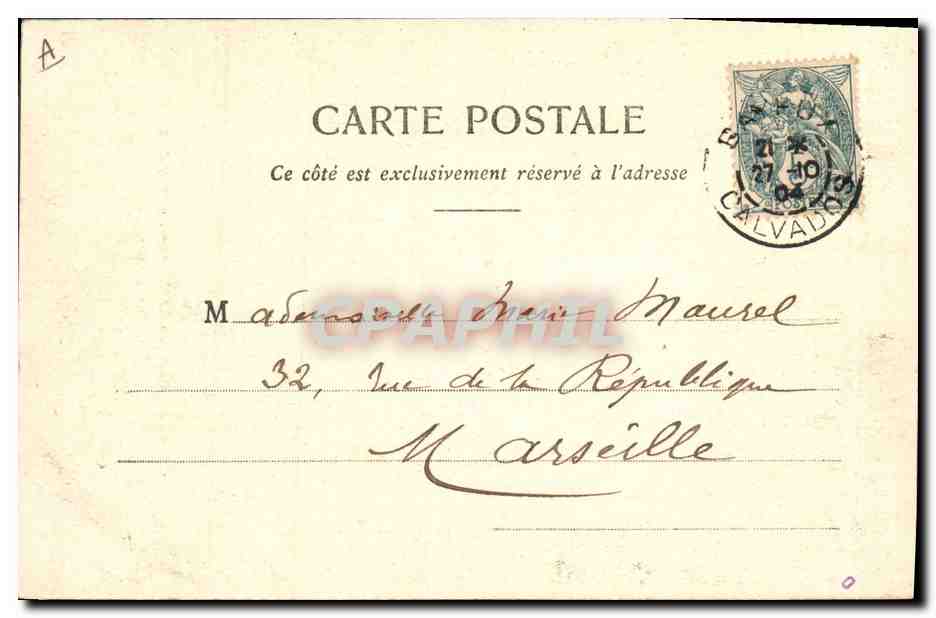 A
CARTE POSTALE
Ce côté est exclusivement réservé à l'adresse
BAYEUX
21 *
27 -10
04
CALVADOS
Mademoiselle Marie Maurel
CPAPHIL
32, rue de la République
Marseille